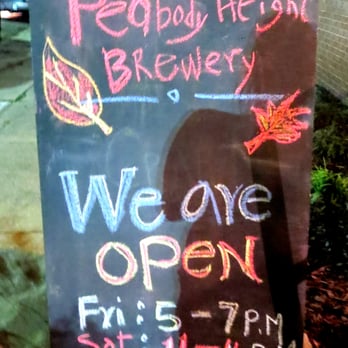 Peabody Height
Brewery
We are
OPEN
Fri: 5-7P.M
Sat: